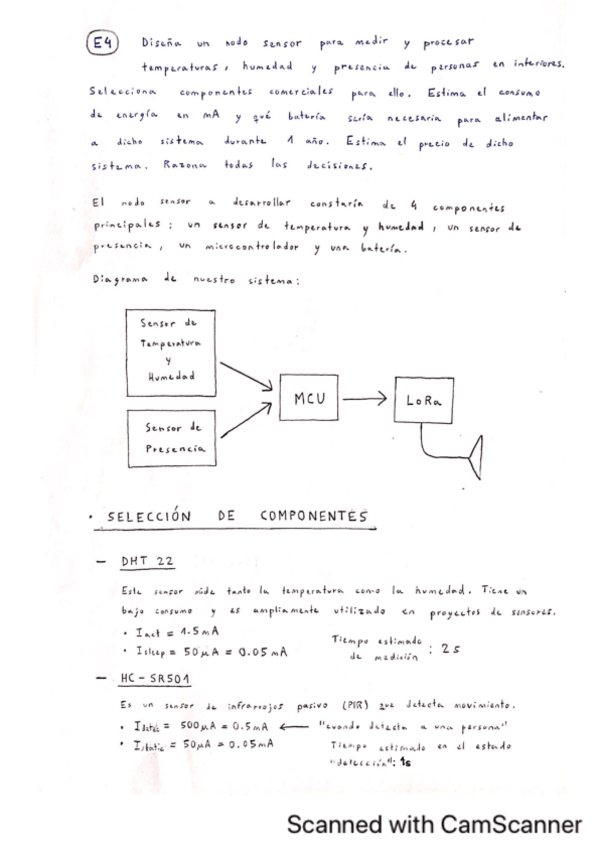 E4 Diseña un nodo sensor para medir y procesar
temperaturas, humedad y presencia de personas en interiores.
Selecciona componentes comerciales para ello. Estima el consumo
de energía en mA y qué batería sería necesaria para alimentar
a dicho sistema durante 1 año. Estima el precio de dicho
sistema. Razona todas las decisiones.
El nodo sensor a desarrollar constaría de 4 componentes
principales: un sensor de temperatura y humedad, un sensor de
presencia, un microcontrolador y una batería.
Diagrama de nuestro sistema:
Sensor de
Temperatura
y
Humedad
Sensor de
Presencia
MCU
LoRa
· SELECCIÓN DE COMPONENTES
- DHT 22
Este sensor mide tanto la temperatura como la humedad. Tiene un
bajo consumo y es ampliamente utilizado en proyectos de sensores.
· Iact = 1.5 mA
· Isleep = 50 µA = 0.05 mA
Tiempo estimado
de medición : 2 s
- HC-SR501
Es un sensor de infrarrojos pasivo (PIR) que detecta movimiento.
· = 500 µA = 0.5 mA ← "cuando detecta a una persona"
· Istatic = 50 µA = 0.05 mA
Tiempo estimado en el estado
"detección": 1s
Scanned with CamScanner